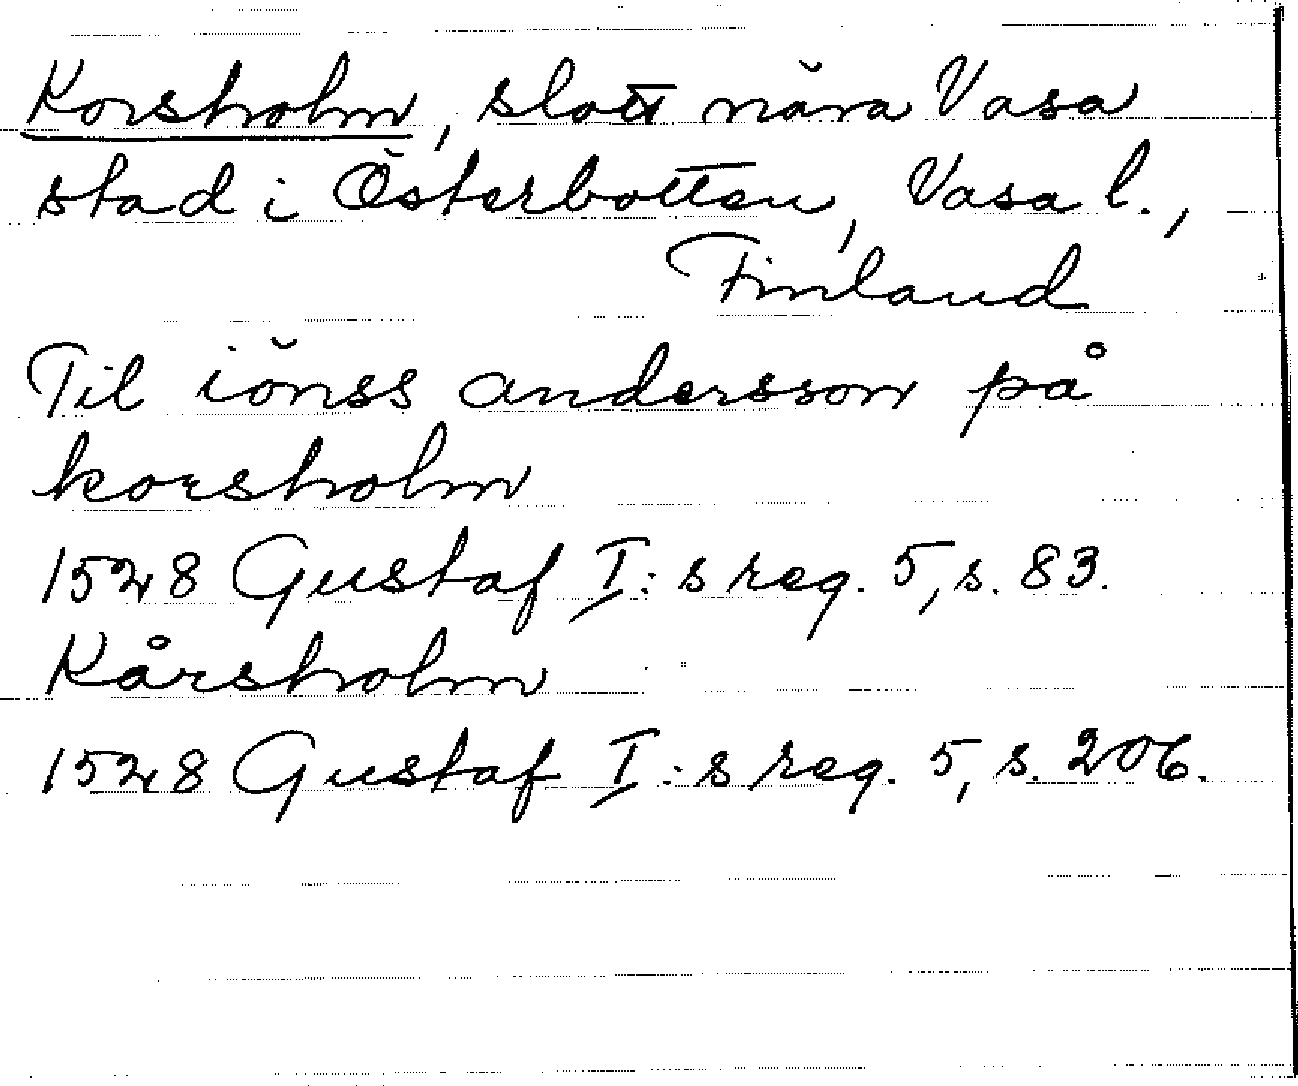 Korsholm, slott nära Vasa
stad i Österbotten, Vasa l.,
Finland
Til iönss andersson på
korsholm
1528 Gustaf I:s reg. 5, s. 83.
Kårsholm
1528 Gustaf I:s reg. 5, s. 206.